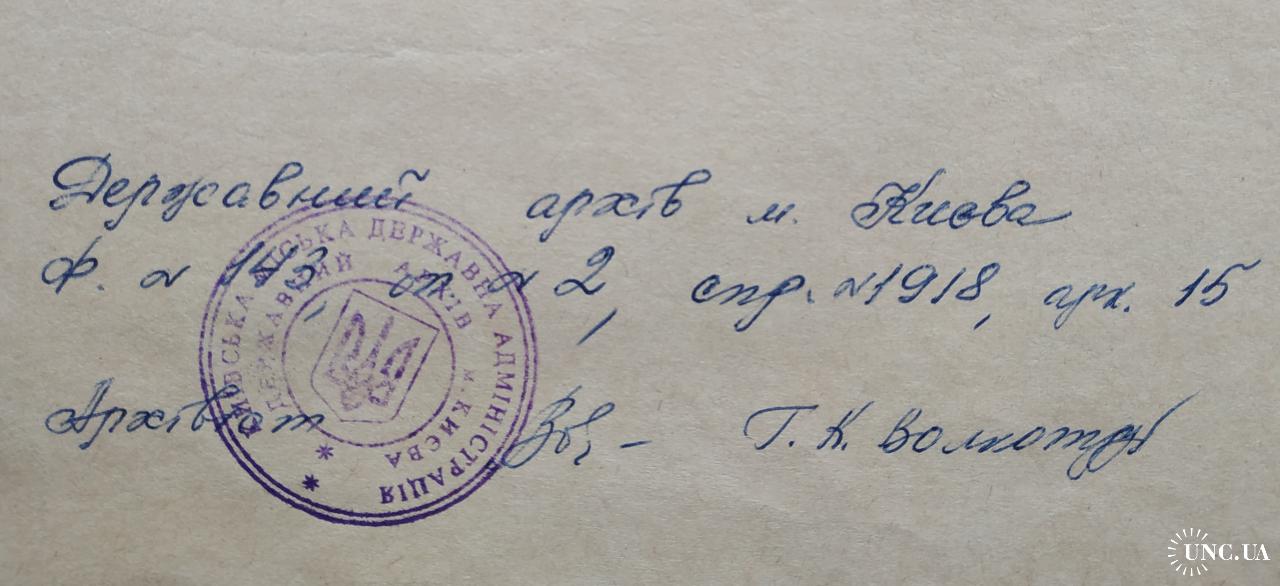 Державний архів м. Києва
Ф. № 143, оп № 2, спр. №1918, арк. 15
Архівіст Г. К. Волкотруб
КИЇВСЬКА МІСЬКА ДЕРЖАВНА АДМІНІСТРАЦІЯ
ДЕРЖАВНИЙ АРХІВ м. КИЄВА
UNC.UA